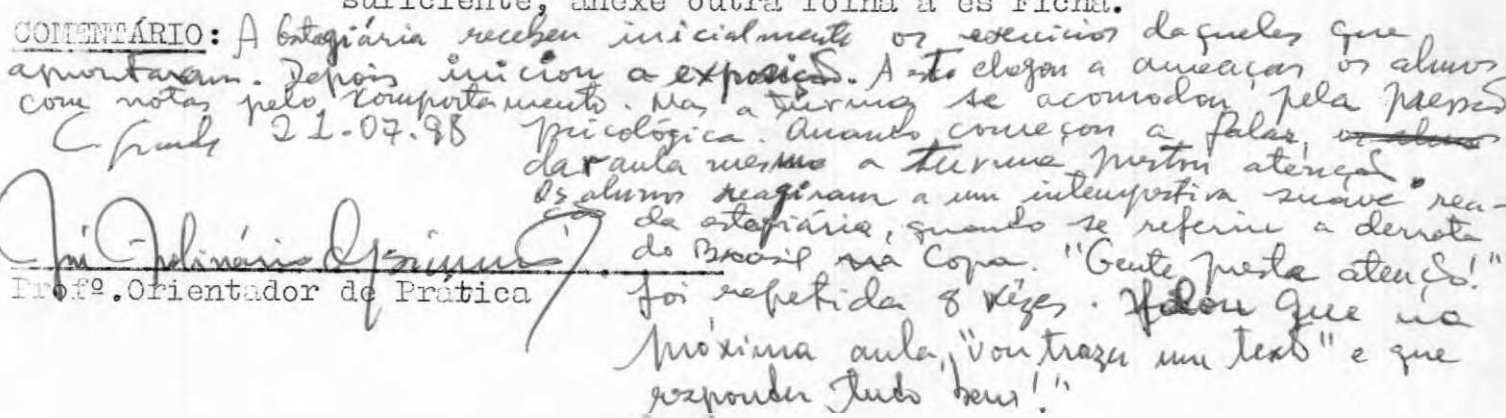 suficiente, anexe outra folha a es Ficha.
COMENTÁRIO: A Estagiária recebeu inicialmente os exercicios daqueles que
aprontaram. Depois iniciou a exposição. A chegou a ameaçar os alunos
com notas pelo comportamento. Mas a turma se acomodou, pela pressão
C. Grande 21-07-98 psicológica. Quando começou a falar,
dar aula mesmo a turma prestou atenção.
Os alunos reagiram a um intempestiva suave rea-
ção da estagiária, quando se referiu a derrota
do Brasil na Copa. "Gente, presta atenção!"
Profº.Orientador de Prática foi repetida 8 vêzes. Falou que na
próxima aula, "vou trazer um texto" e que
responder tudo bem!"